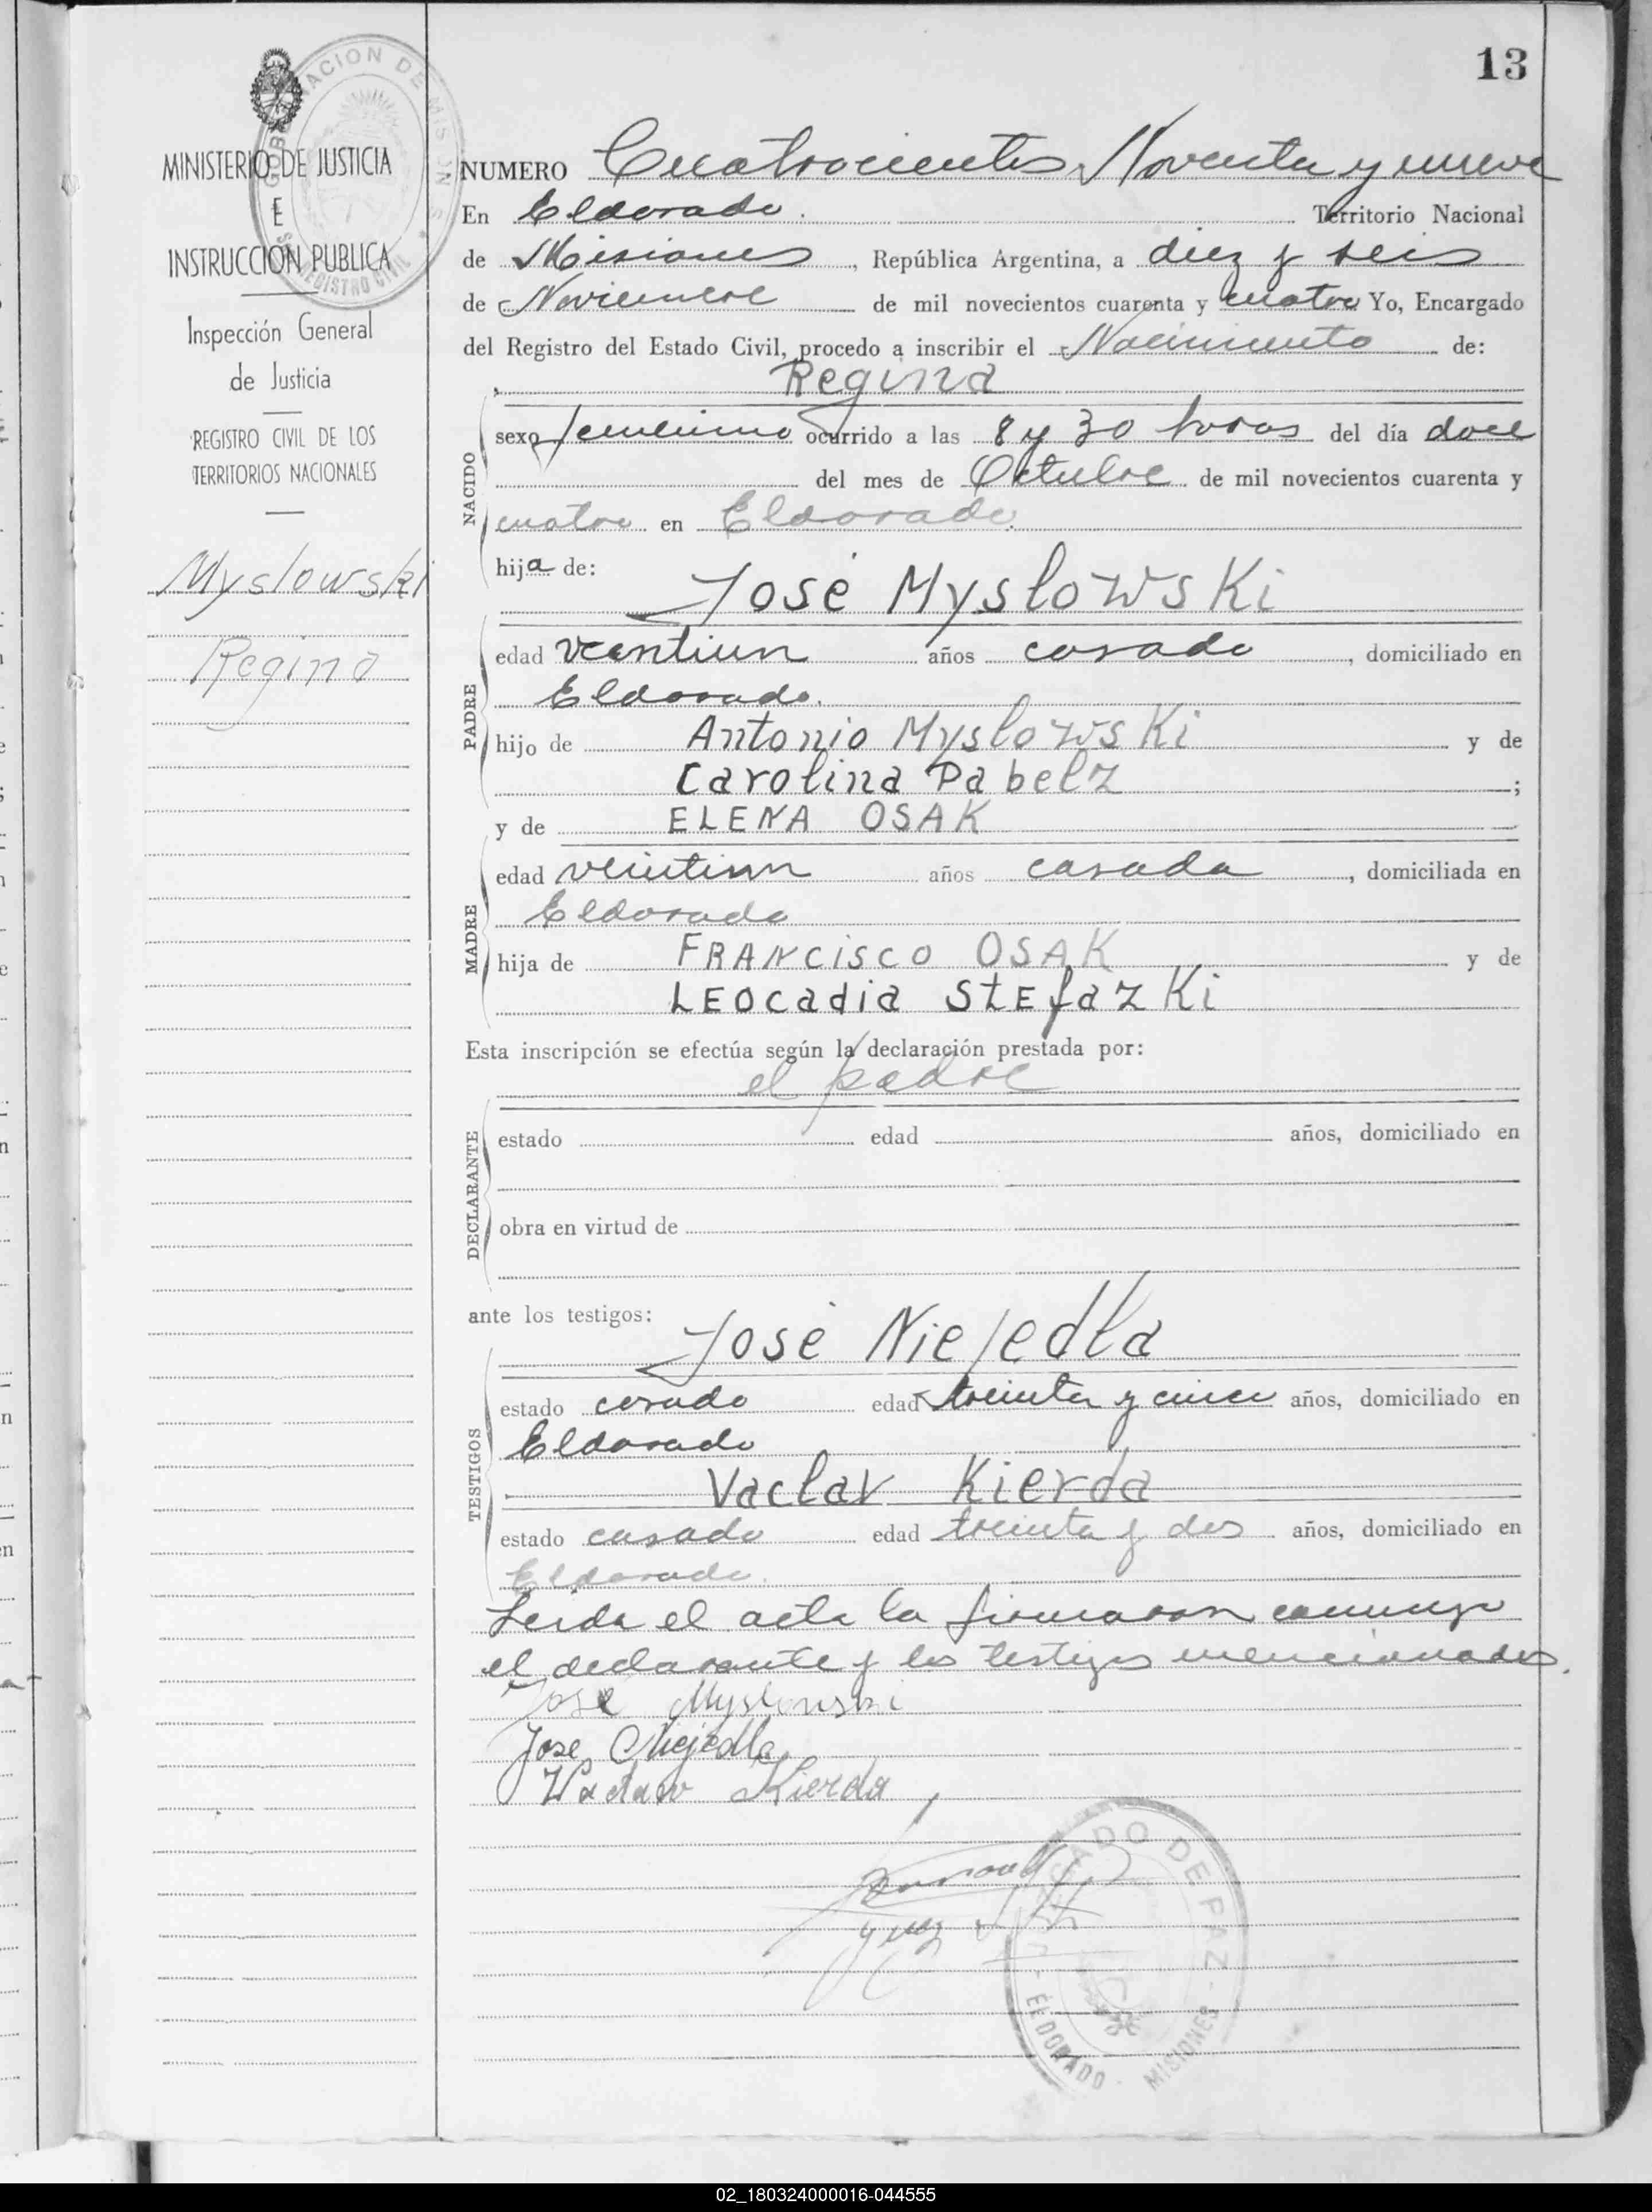 13
GOBERNACION DE MISIONES
REGISTRO CIVIL
MINISTERIO DE JUSTICIA
E
INSTRUCCION PUBLICA
Inspección General
de Justicia
REGISTRO CIVIL DE LOS
TERRITORIOS NACIONALES
Myslowski
Regina
NUMERO Cuatrocientos Noventa y nueve
En Eldorado. Territorio Nacional
de Misiones, República Argentina, a diez y seis
de Noviembre de mil novecientos cuarenta y cuatro Yo, Encargado
del Registro del Estado Civil, procedo a inscribir el Nacimiento de:
Regina
NACIDO
sexo femenino ocurrido a las 8 y 30 horas del día doce
del mes de Octubre de mil novecientos cuarenta y
cuatro en Eldorado.
hija de:
José Mysłowski
PADRE
edad veintiun años casado, domiciliado en
Eldorado.
hijo de Antonio Mysłowski y de
Carolina Pabelz;
y de ELENA OSAK
MADRE
edad veintiun años casada, domiciliada en
Eldorado
hija de FRANCISCO OSAK y de
LEOCadia StEfazKi
Esta inscripción se efectúa según la declaración prestada por:
el padre
DECLARANTE
estado edad años, domiciliado en
obra en virtud de
ante los testigos:
José Niejedla
TESTIGOS
estado casado edad treinta y cinco años, domiciliado en
Eldorado
Vaclav Kierda
estado casado edad treinta y dos años, domiciliado en
Eldorado.
Leida el acta la firmaron conmigo
el declarante y los testigos mencionados.
José Myslowski
Jose Niejedla
Wacław Kierda
JUZGADO DE PAZ
ELDORADO - MISIONES
02_180324000016-044555